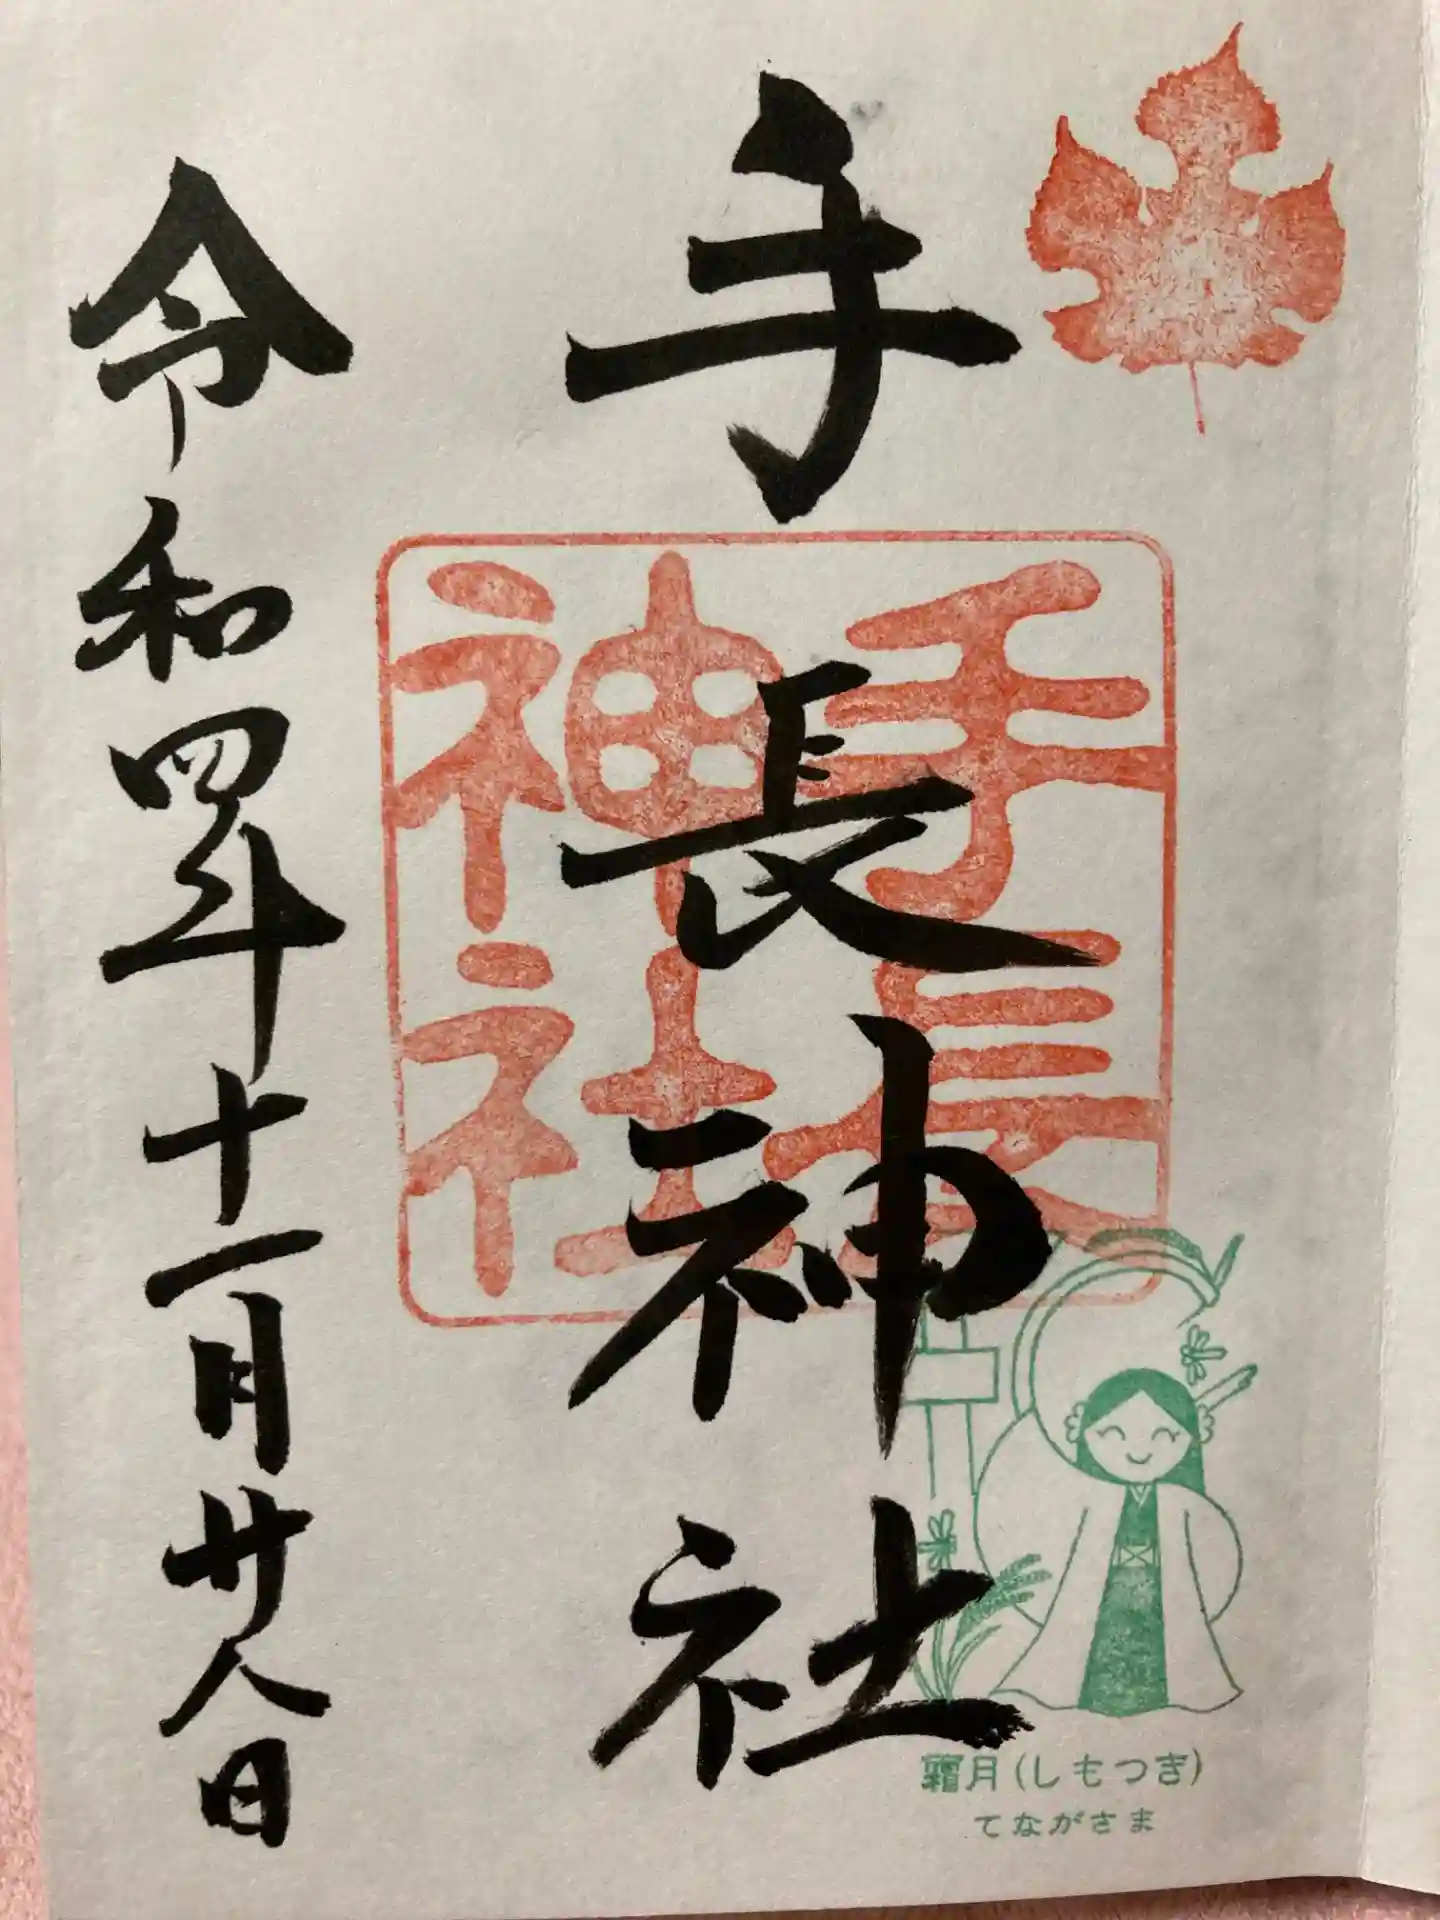 手長神社
手長
神社
令和四年十一月廿八日
霜月(しもつき)
てながさま